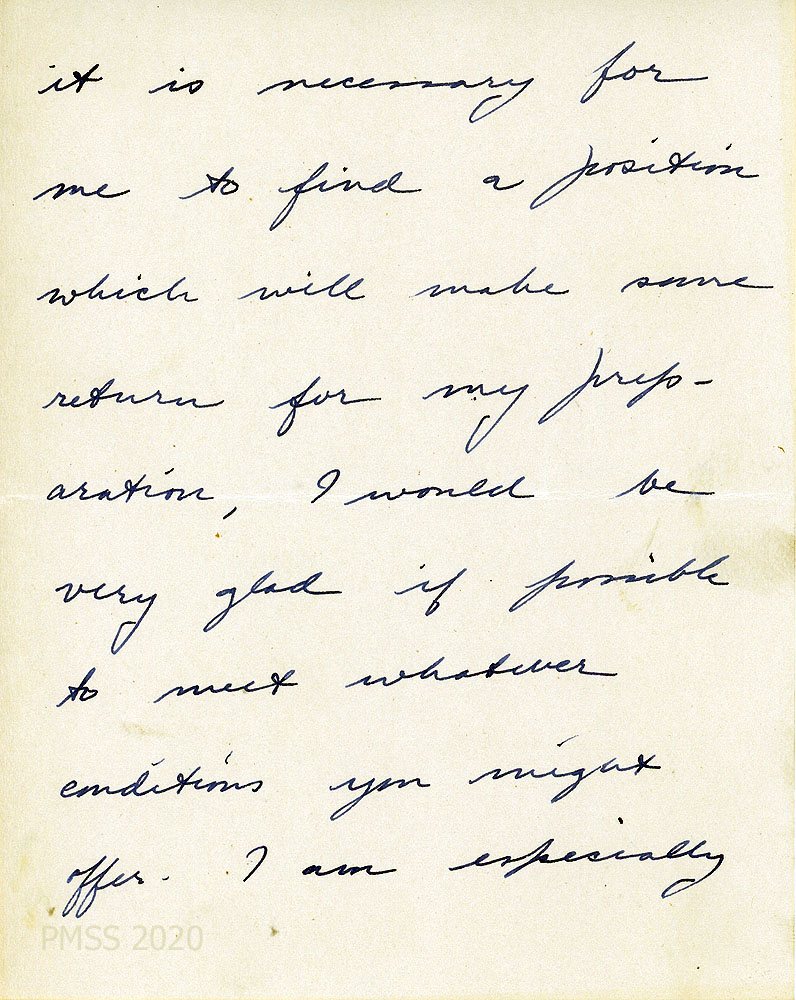 it is necessary for
me to find a position
which will make some
return for my prep-
aration, I would be
very glad if possible
to meet whatever
conditions you might
offer. I am especially
PMSS 2020